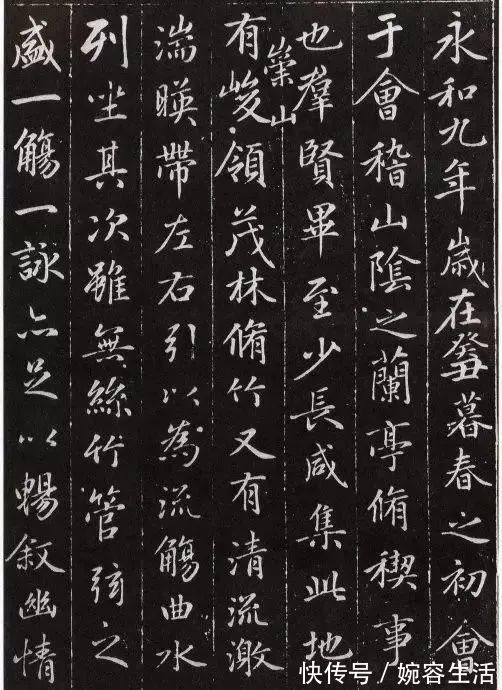 永和九年歲在癸丑暮春之初會
于會稽山陰之蘭亭脩稧事
也羣賢畢至少長咸集此地
有崇山峻領茂林脩竹又有清流激
湍暎帶左右引以為流觴曲水
列坐其次雖無絲竹管弦之
盛一觴一詠亦足以暢叙幽情
快传号／婉容生活